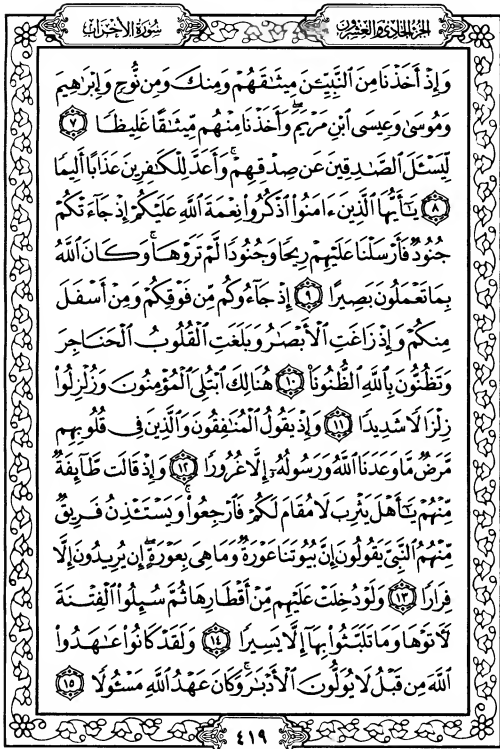 سُورَةُ الأَحْزَابِ
الجُزْءُ الحَادِي وَالعِشْرُونَ
وَإِذْ أَخَذْنَا مِنَ ٱلنَّبِيِّـۧنَ مِيثَـٰقَهُمْ وَمِنكَ وَمِن نُّوحٍ وَإِبْرَٰهِيمَ
وَمُوسَىٰ وَعِيسَى ٱبْنِ مَرْيَمَ ۖ وَأَخَذْنَا مِنْهُم مِّيثَـٰقًا غَلِيظًا ٧
لِّيَسْـَٔلَ ٱلصَّـٰدِقِينَ عَن صِدْقِهِمْ ۚ وَأَعَدَّ لِلْكَـٰفِرِينَ عَذَابًا أَلِيمًا
٨ يَـٰٓأَيُّهَا ٱلَّذِينَ ءَامَنُوا۟ ٱذْكُرُوا۟ نِعْمَةَ ٱللَّهِ عَلَيْكُمْ إِذْ جَآءَتْكُمْ
جُنُودٌ فَأَرْسَلْنَا عَلَيْهِمْ رِيحًا وَجُنُودًا لَّمْ تَرَوْهَا ۚ وَكَانَ ٱللَّهُ
بِمَا تَعْمَلُونَ بَصِيرًا ٩ إِذْ جَآءُوكُم مِّن فَوْقِكُمْ وَمِنْ أَسْفَلَ
مِنكُمْ وَإِذْ زَاغَتِ ٱلْأَبْصَـٰرُ وَبَلَغَتِ ٱلْقُلُوبُ ٱلْحَنَاجِرَ
وَتَظُنُّونَ بِٱللَّهِ ٱلظُّنُونَا۠ ١٠ هُنَالِكَ ٱبْتُلِىَ ٱلْمُؤْمِنُونَ وَزُلْزِلُوا۟
زِلْزَالًا شَدِيدًا ١١ وَإِذْ يَقُولُ ٱلْمُنَـٰفِقُونَ وَٱلَّذِينَ فِى قُلُوبِهِم
مَّرَضٌ مَّا وَعَدَنَا ٱللَّهُ وَرَسُولُهُۥٓ إِلَّا غُرُورًا ١٢ وَإِذْ قَالَت طَّآئِفَةٌ
مِّنْهُمْ يَـٰٓأَهْلَ يَثْرِبَ لَا مُقَامَ لَكُمْ فَٱرْجِعُوا۟ ۚ وَيَسْتَـْٔذِنُ فَرِيقٌ
مِّنْهُمُ ٱلنَّبِىَّ يَقُولُونَ إِنَّ بُيُوتَنَا عَوْرَةٌ وَمَا هِىَ بِعَوْرَةٍ ۖ إِن يُرِيدُونَ إِلَّا
فِرَارًا ١٣ وَلَوْ دُخِلَتْ عَلَيْهِم مِّنْ أَقْطَارِهَا ثُمَّ سُئِلُوا۟ ٱلْفِتْنَةَ
لَـَٔاتَوْهَا وَمَا تَلَبَّثُوا۟ بِهَآ إِلَّا يَسِيرًا ١٤ وَلَقَدْ كَانُوا۟ عَـٰهَدُوا۟
ٱللَّهَ مِن قَبْلُ لَا يُوَلُّونَ ٱلْأَدْبَـٰرَ ۚ وَكَانَ عَهْدُ ٱللَّهِ مَسْـُٔولًا ١٥
٤١٩